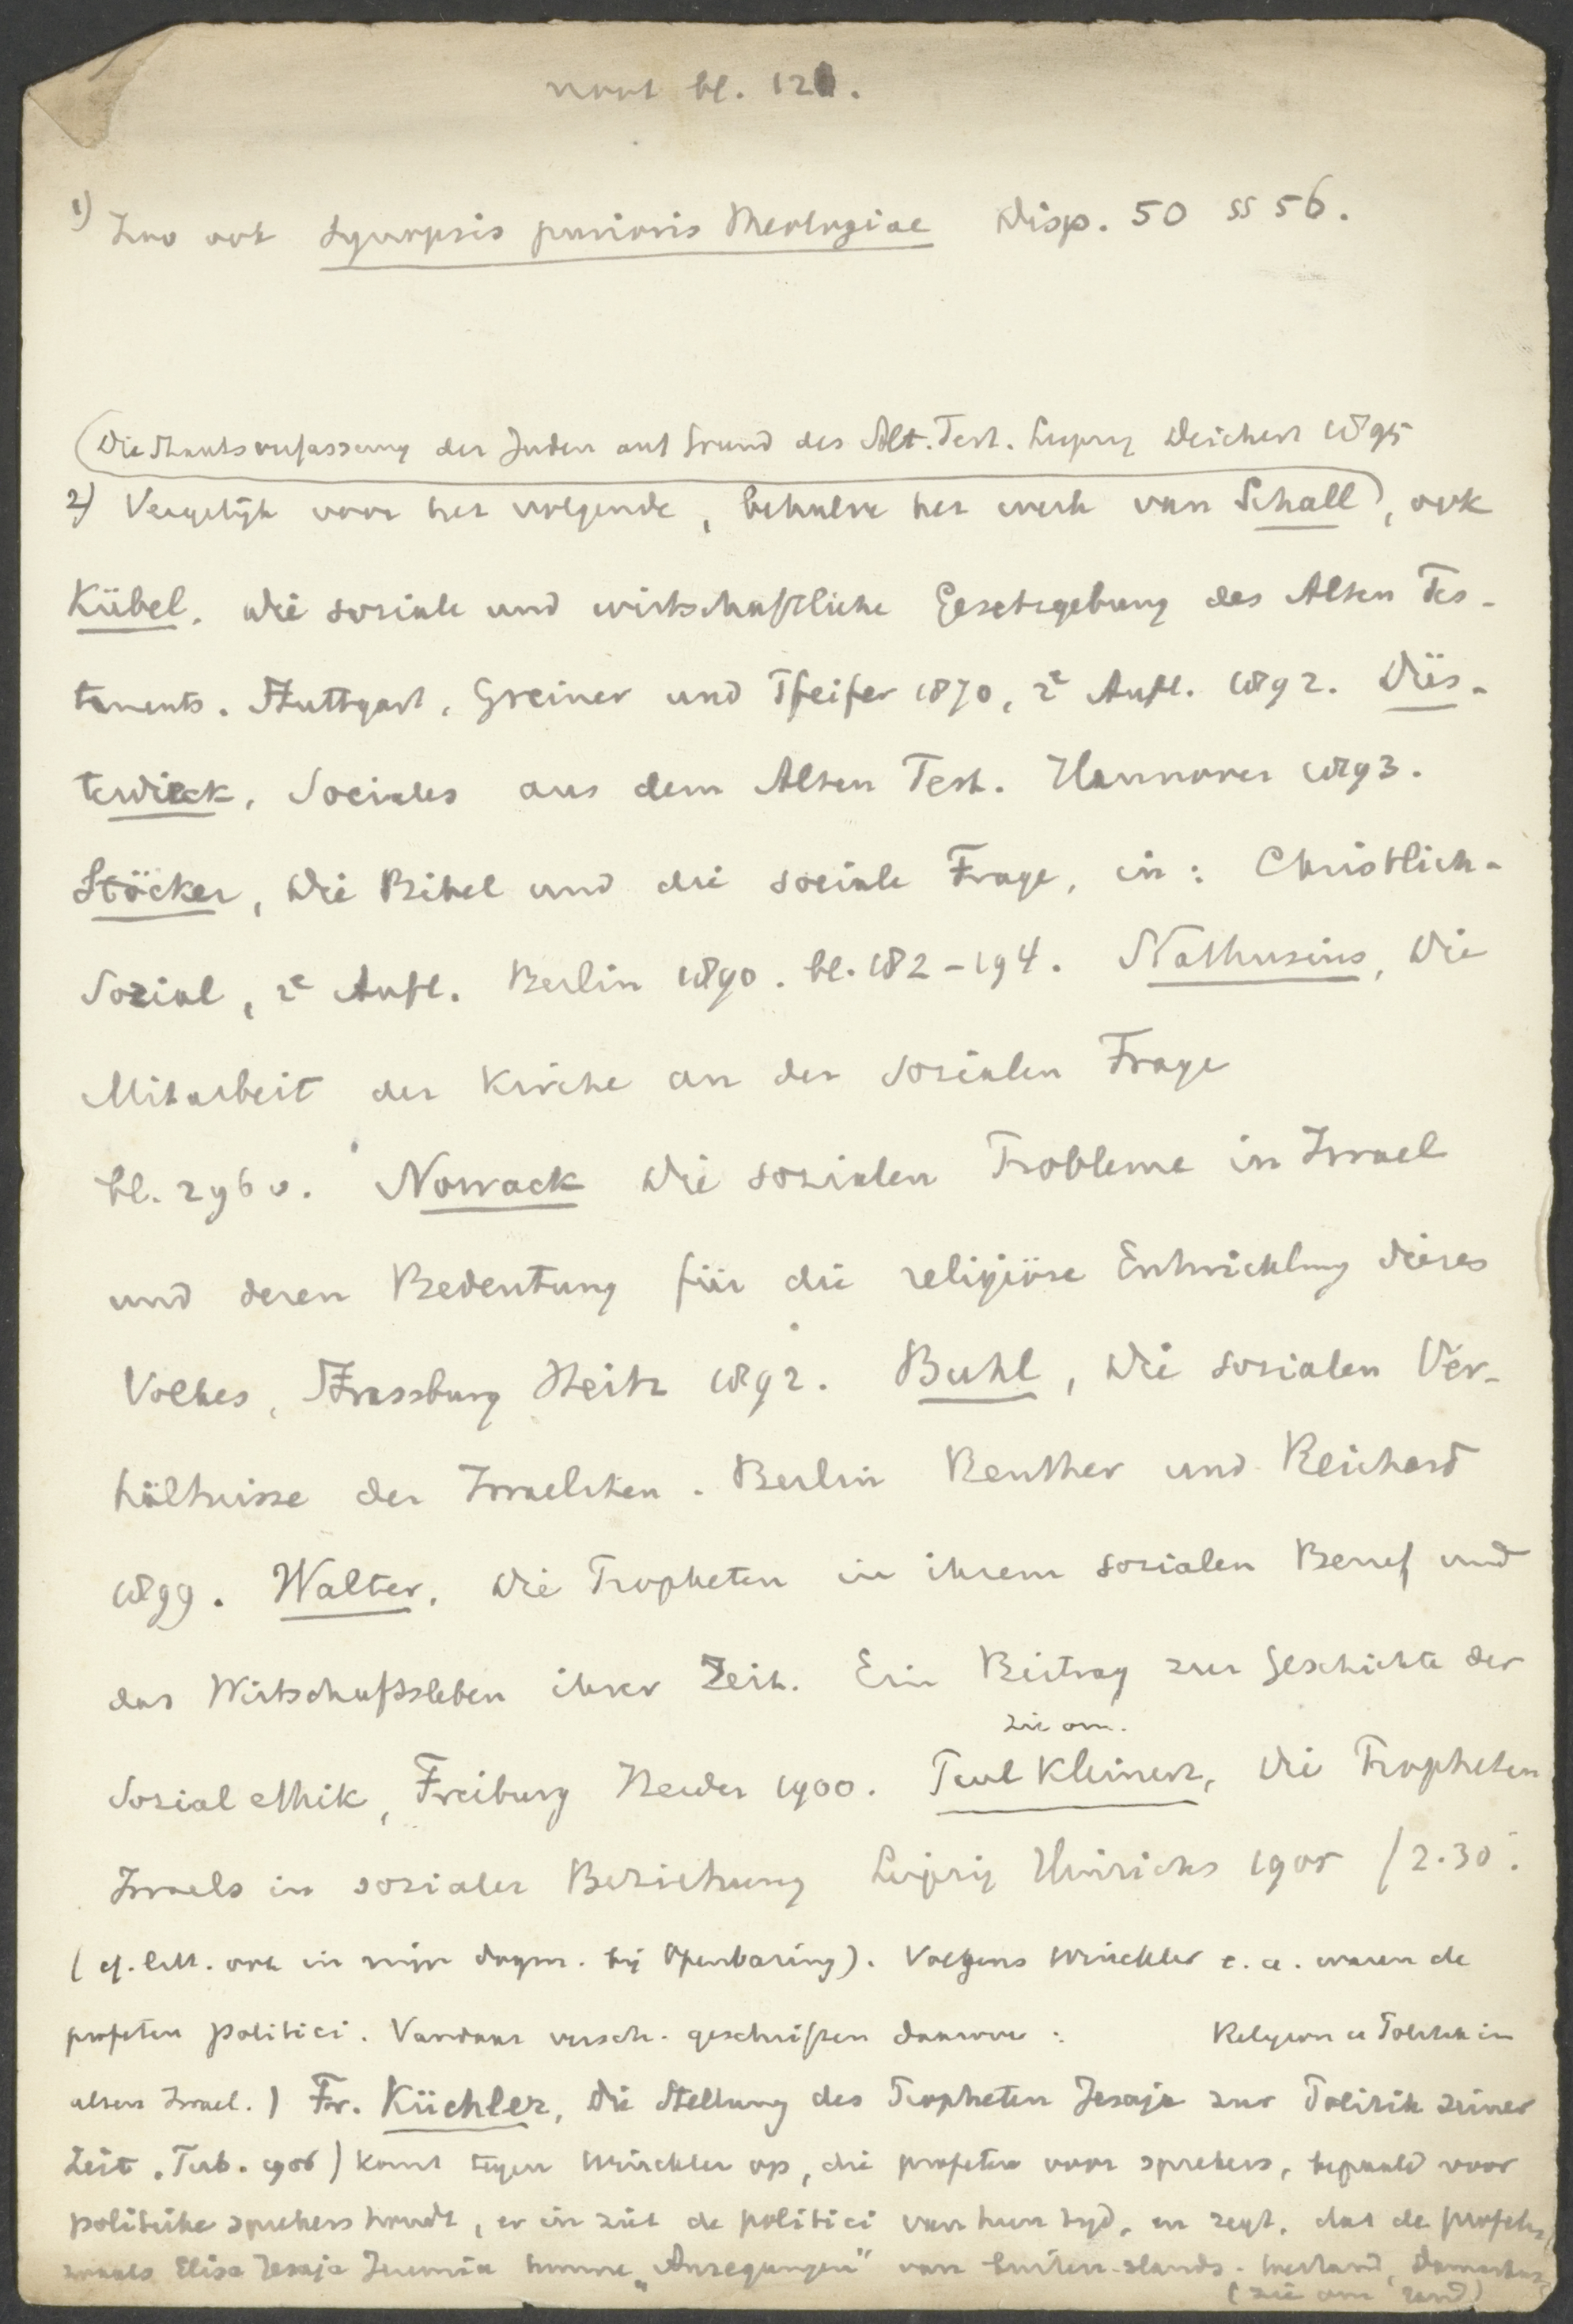 noot bl. 121.
1) Zoo ook Synopsis purioris Theologiae Disp. 50 §§ 56.
(Die Staatsverfassung der Juden auf Grund des Alt. Test. Leipzig Deichert 1895
2) Vergelijk voor het volgende, behalve het werk van Schall), ook
Kübel, Die soziale und wirtschaftliche Gesetzgebung des Alten Tes-
taments. Stuttgart, Greiner und Pfeifer 1870, 2e Aufl. 1892. Düs-
terdieck, Sociales aus dem Alten Test. Hannover 1893.
Stöcker, Die Bibel und die sociale Frage, in: Christlich-
Sozial, 2e Aufl. Berlin 1890. bl. 182-194. Nathusius, Die
Mitarbeit der Kirche an der sozialen Frage
bl. 296 v. Nowack Die sozialen Probleme in Israel
und deren Bedeutung für die religiöse Entwicklung dieses
Volkes, Strassburg Heitz 1892. Buhl, Die sozialen Ver-
hältnisse der Israeliten. Berlin Reuther und Reichard
1899. Walter, Die Propheten in ihrem sozialen Beruf und
das Wirtschaftsleben ihrer Zeit. Ein Beitrag zur Geschichte der
zie om.
Sozialethik, Freiburg Herder 1900. Paul Kleinert, Die Propheten
Israels in sozialer Beziehung Leipzig Hinrichs 1905 / 2.30.
(cf. litt. ook in mijn dogm. bij Openbaring). Volgens Winckler e. a. waren de
profeten politici. Vandaar versch. geschriften daarover: Religion u Politik in
alten Israel.) Fr. Küchler, Die Stellung des Propheten Jesaja zur Politik seiner
Zeit. Tub. 1906) komt tegen Winckler op, die profeten voor sprekers, bepaald voor
politieke sprekers houdt, er in ziet de politici van hun tijd, en zegt, dat de profeten
zooals Elisa Jesaja Jeremia hunne "Anregungen" van buiten-slands. Damaskus
(zie om rand)